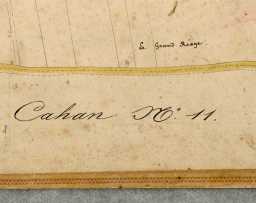 Le Grand Rouge
Cahan N° 11.